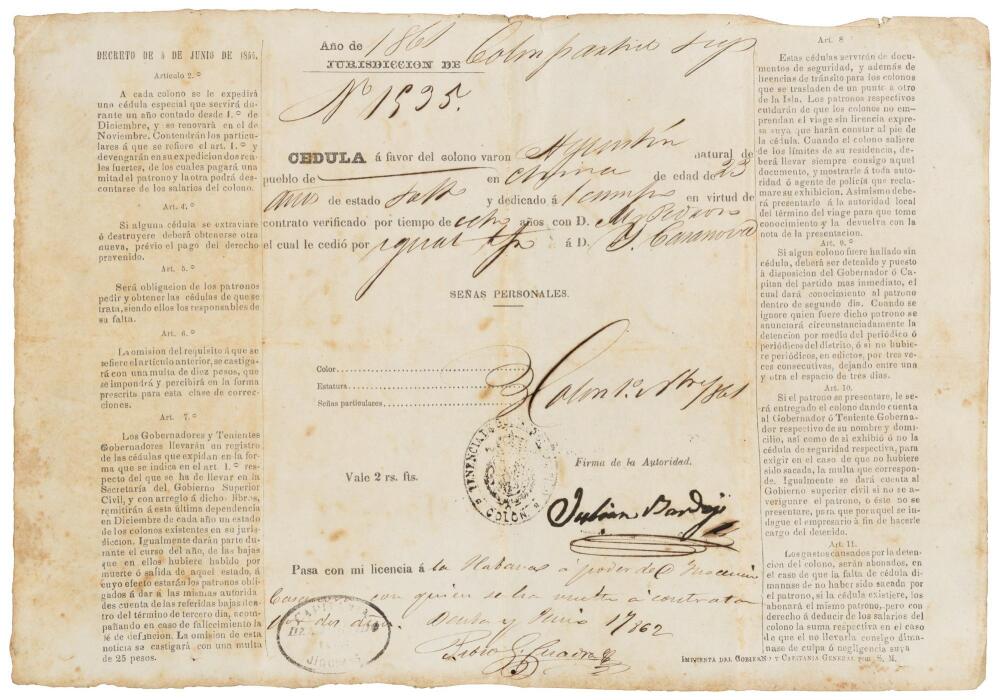 DECRETO DE 4 DE JUNIO DE 1855.
Artículo 2.º
A cada colono se le expedirá
una cédula especial que servirá du-
rante un año contado desde 1.º de
Diciembre, y se renovará en el de
Noviembre. Contendrán los particula-
res á que se refiere el art. 1.º y
devengarán en su expedicion dos rea-
les fuertes, de los cuales pagará una
mitad el patrono y la otra podrá des-
contarse de los salarios del colono.
Art. 4.º
Si alguna cédula se extraviare
ó destruyere deberá obtenerse otra
nueva, prévio el pago del derecho
pravenido.
Art. 5.º
Será obligacion de los patronos
pedir y obtener las cédulas de que se
trata, siendo ellos los responsables de
su falta.
Art. 6.º
La omision del requisito á que se
refiere el artículo anterior, se castiga-
rá con una multa de diez pesos, que
se impondrá y percibirá en la forma
prescrita para esta clase de correc-
ciones.
Art. 7.º
Los Gobernadores y Tenientes
Gobernadores llevarán un registro
de las cédulas que expidan en la for-
ma que se indica en el art. 1.º res-
pecto del que se ha de llevar en la
Secretaría del Gobierno Superior
Civil, y con arreglo á dicho libros,
remitirán á esta última dependencia
en Diciembre de cada año un estado
de los colonos existentes en su juris-
diccion. Igualmente darán parte du-
rante el curso del año, de las bajas
que en ellos hubiere habido por
muerte ó salida de aquel estado, á
cuyo efecto estarán los patronos obli-
gados á dar á las mismas autorida-
des cuenta de las referidas bajas den-
tro del término de tercero dia, acom-
pañando en caso de fallecimiento la
fé de defuncion. La omision de esta
noticia se castigará con una multa
de 25 pesos.
Año de 1861
JURISDICCION DE Colon
Nº 1535.
CEDULA á favor del colono varon Agustín natural de
pueblo de en China de edad de 23
años de estado Solto y dedicado á campo en virtud de
contrato verificado por tiempo de ocho años con D.
el cual le cedió por igual á D. Casanova
SEÑAS PERSONALES.
Color
Estatura
Señas particulares
Colon 1º 1861
TENENCIA DE GOBIERNO
COLON
Vale 2 rs. fts.
Firma de la Autoridad.
Julian Bardaji
Pasa con mi licencia á la Habana a poder de D Inocencio
Casanova con quien se ha a contratar
por dos Junio 17/862
CAPITANIA
JIQUIMAS
Art. 8
Estas cédulas servirán de docu-
mentos de seguridad, y además de
licencias de tránsito para los colonos
que se trasladen de un punto á otro
de la Isla. Los patronos respectivos
cuidarán de que los colonos no em-
prendan el viage sin licencia expre-
sa suya que harán constar al pie de
la cédula. Cuando el colono saliere
de los límites de su residencia, de-
berá llevar siempre consigo aquel
documento, y mostrarle á toda auto-
ridad ó agente de policía que recla-
mare su exhibicion. Asimismo debe-
rá presentarlo á la autoridad local
del término del viage para que tome
conocimiento y la devuelva con la
nota de la presentacion.
Art. 9.º
Si algun colono fuere hallado sin
cédula, deberá ser detenido y puesto
á disposicion del Gobernador ó Ca-
pitan del partido mas inmediato, el
cual dará conocimiento al patrono
dentro de segundo dia. Cuando se
ignore quien fuere dicho patrono se
anunciará circunstanciadamente la
detencion por medio del periódico ó
periódicos del distrito, ó si no hubie-
re periódicos, en edictos, por tres ve-
ces consecutivas, dejando entre una
y otra el espacio de tres dias.
Art. 10.
Si el patrono se presentare, le se-
rá entregado el colono dando cuenta
al Gobernador ó Teniente Goberna-
dor respectivo de su nombre y domi-
cilio, así como de si exhibió ó no la
cédula de seguridad respectiva, para
exigir en el caso de que no hubiere
sido sacada, la multa que correspon-
de. Igualmente se dará cuenta al
Gobierno superior civil si no se a-
veriguare el patrono, ó éste no se
presentare, para que por aquel se in-
dague el empresario á fin de hacerle
cargo del detenido.
Art. 11.
Los gastos causados por la deten-
cion del colono, serán abonados, en
el caso de que la falta de cédula di-
manase de no haberse sacado por
el patrono, si la cédula existiere, los
abonará el mismo patrono, pero con
derecho á deducir de los salarios del
colono la suma respectiva en el caso
de que el no llevarla consigo dima-
nase de culpa ó negligencia suya
IMPRENTA DEL GOBIERNO Y CAPITANÍA GENERAL POR S. M.